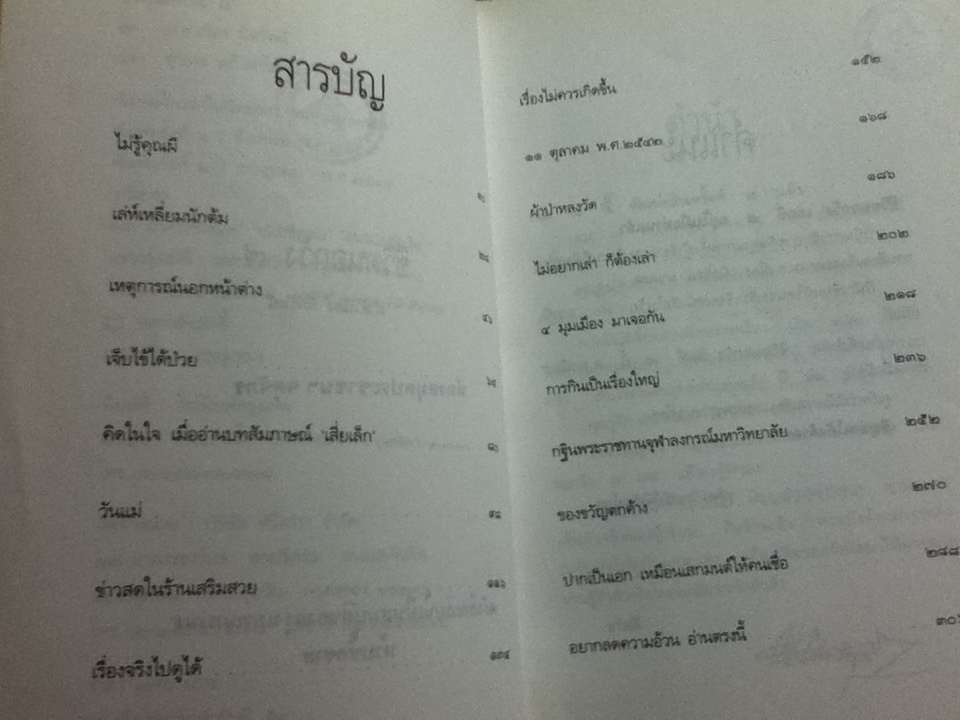 สารบัญ
ไม่รู้คุณผี
เล่ห์เหลี่ยมนักต้ม
เหตุการณ์นอกหน้าต่าง
เจ็บไข้ได้ป่วย
คิดในใจ เมื่ออ่านบทสัมภาษณ์ 'เสี่ยเล็ก'
วันแม่
ข่าวสดในร้านเสริมสวย
เรื่องจริงไปดูได้
๑๕๒
เรื่องไม่ควรเกิดขึ้น
๑๖๘
๑๑ ตุลาคม พ.ศ.๒๕๔๒
๑๘๖
ผ้าป่าหลงวัด
๒๐๒
ไม่อยากเล่า ก็ต้องเล่า
๒๑๘
๔ มุมเมือง มาเจอกัน
๒๓๖
การกินเป็นเรื่องใหญ่
๒๕๒
กฐินพระราชทานจุฬาลงกรณ์มหาวิทยาลัย
๒๗๐
ของขวัญตกค้าง
๒๘๘
ปากเป็นเอก เหมือนเสกมนต์ให้คนเชื่อ
อยากลดความอ้วน อ่านตรงนี้